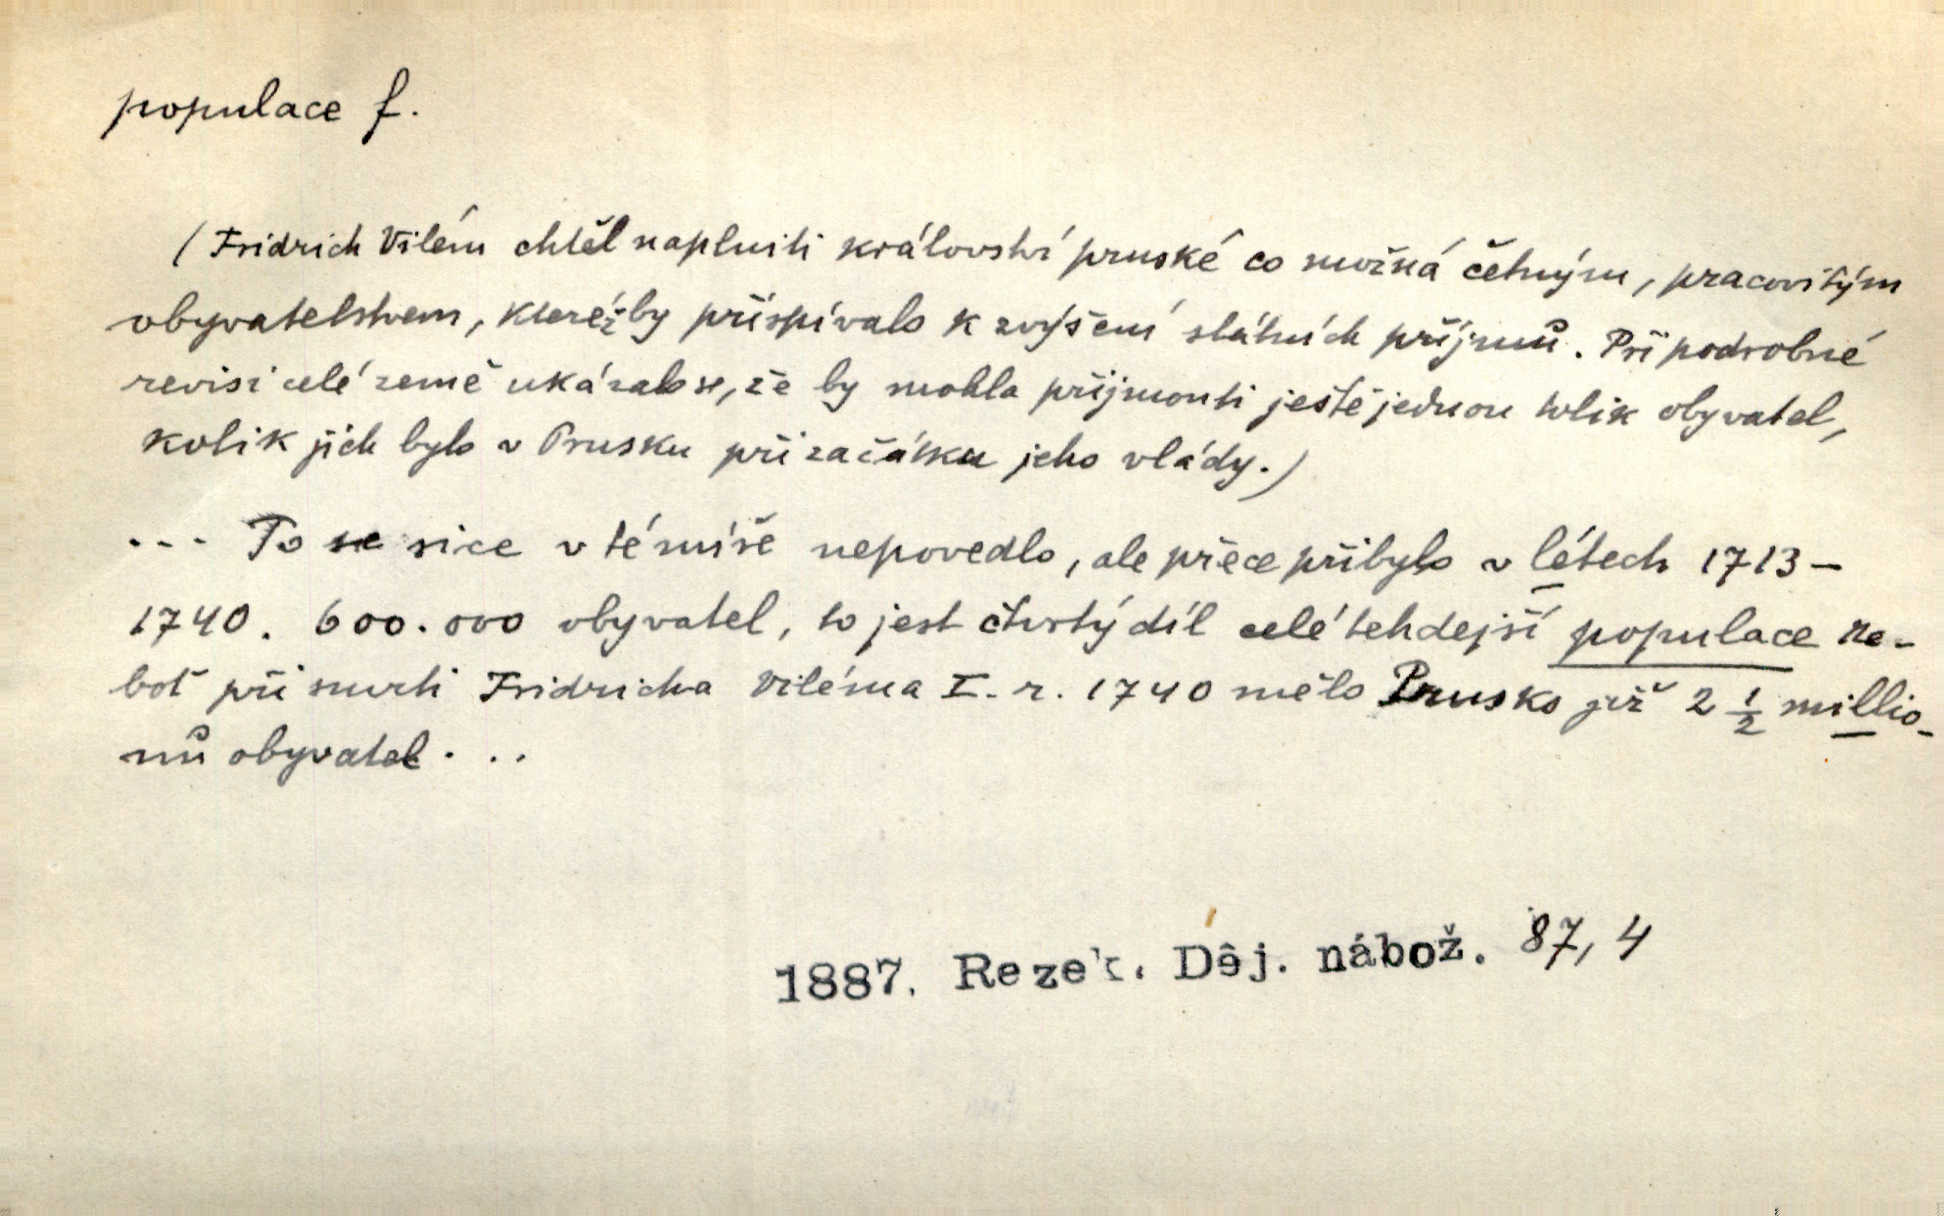 populace f.
(Fridrich Vilém chtěl naplniti království pruské co možná četným, pracovitým
obyvatelstvem, kteréžby přispívalo k zvýšení státních příjmů. Při podrobné
revisi celé země ukázalo se, že by mohla přijmouti ještě jednou tolik obyvatel,
kolik jich bylo v Prusku při začátku jeho vlády.)
... To se sice v té míře nepovedlo, ale přece přibylo v létech 1713-
1740. 600.000 obyvatel, to jest čtvrtý díl celé tehdejší populace ne-
boť při smrti Fridricha Viléma I. r. 1740 mělo Prusko již 2 1/2 millio-
nů obyvatel...
1887. Rezek. Děj. nábož. 87, 4